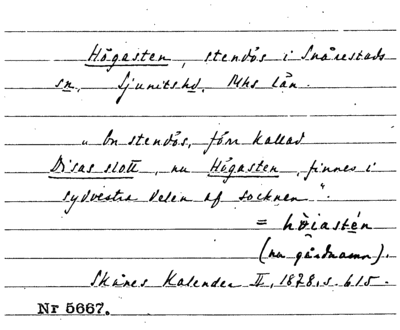 Högasten, stendös i Snårestads
sn, Ljunitshd, Mhs län.
"En stendös, förr kallad
Disas slott, nu Högasten, finnes i
sydvestra delen af socknen".
= höiastén
(nu gårdnamn).
Skånes Kalender II, 1878, s. 615.
Nr 5667.